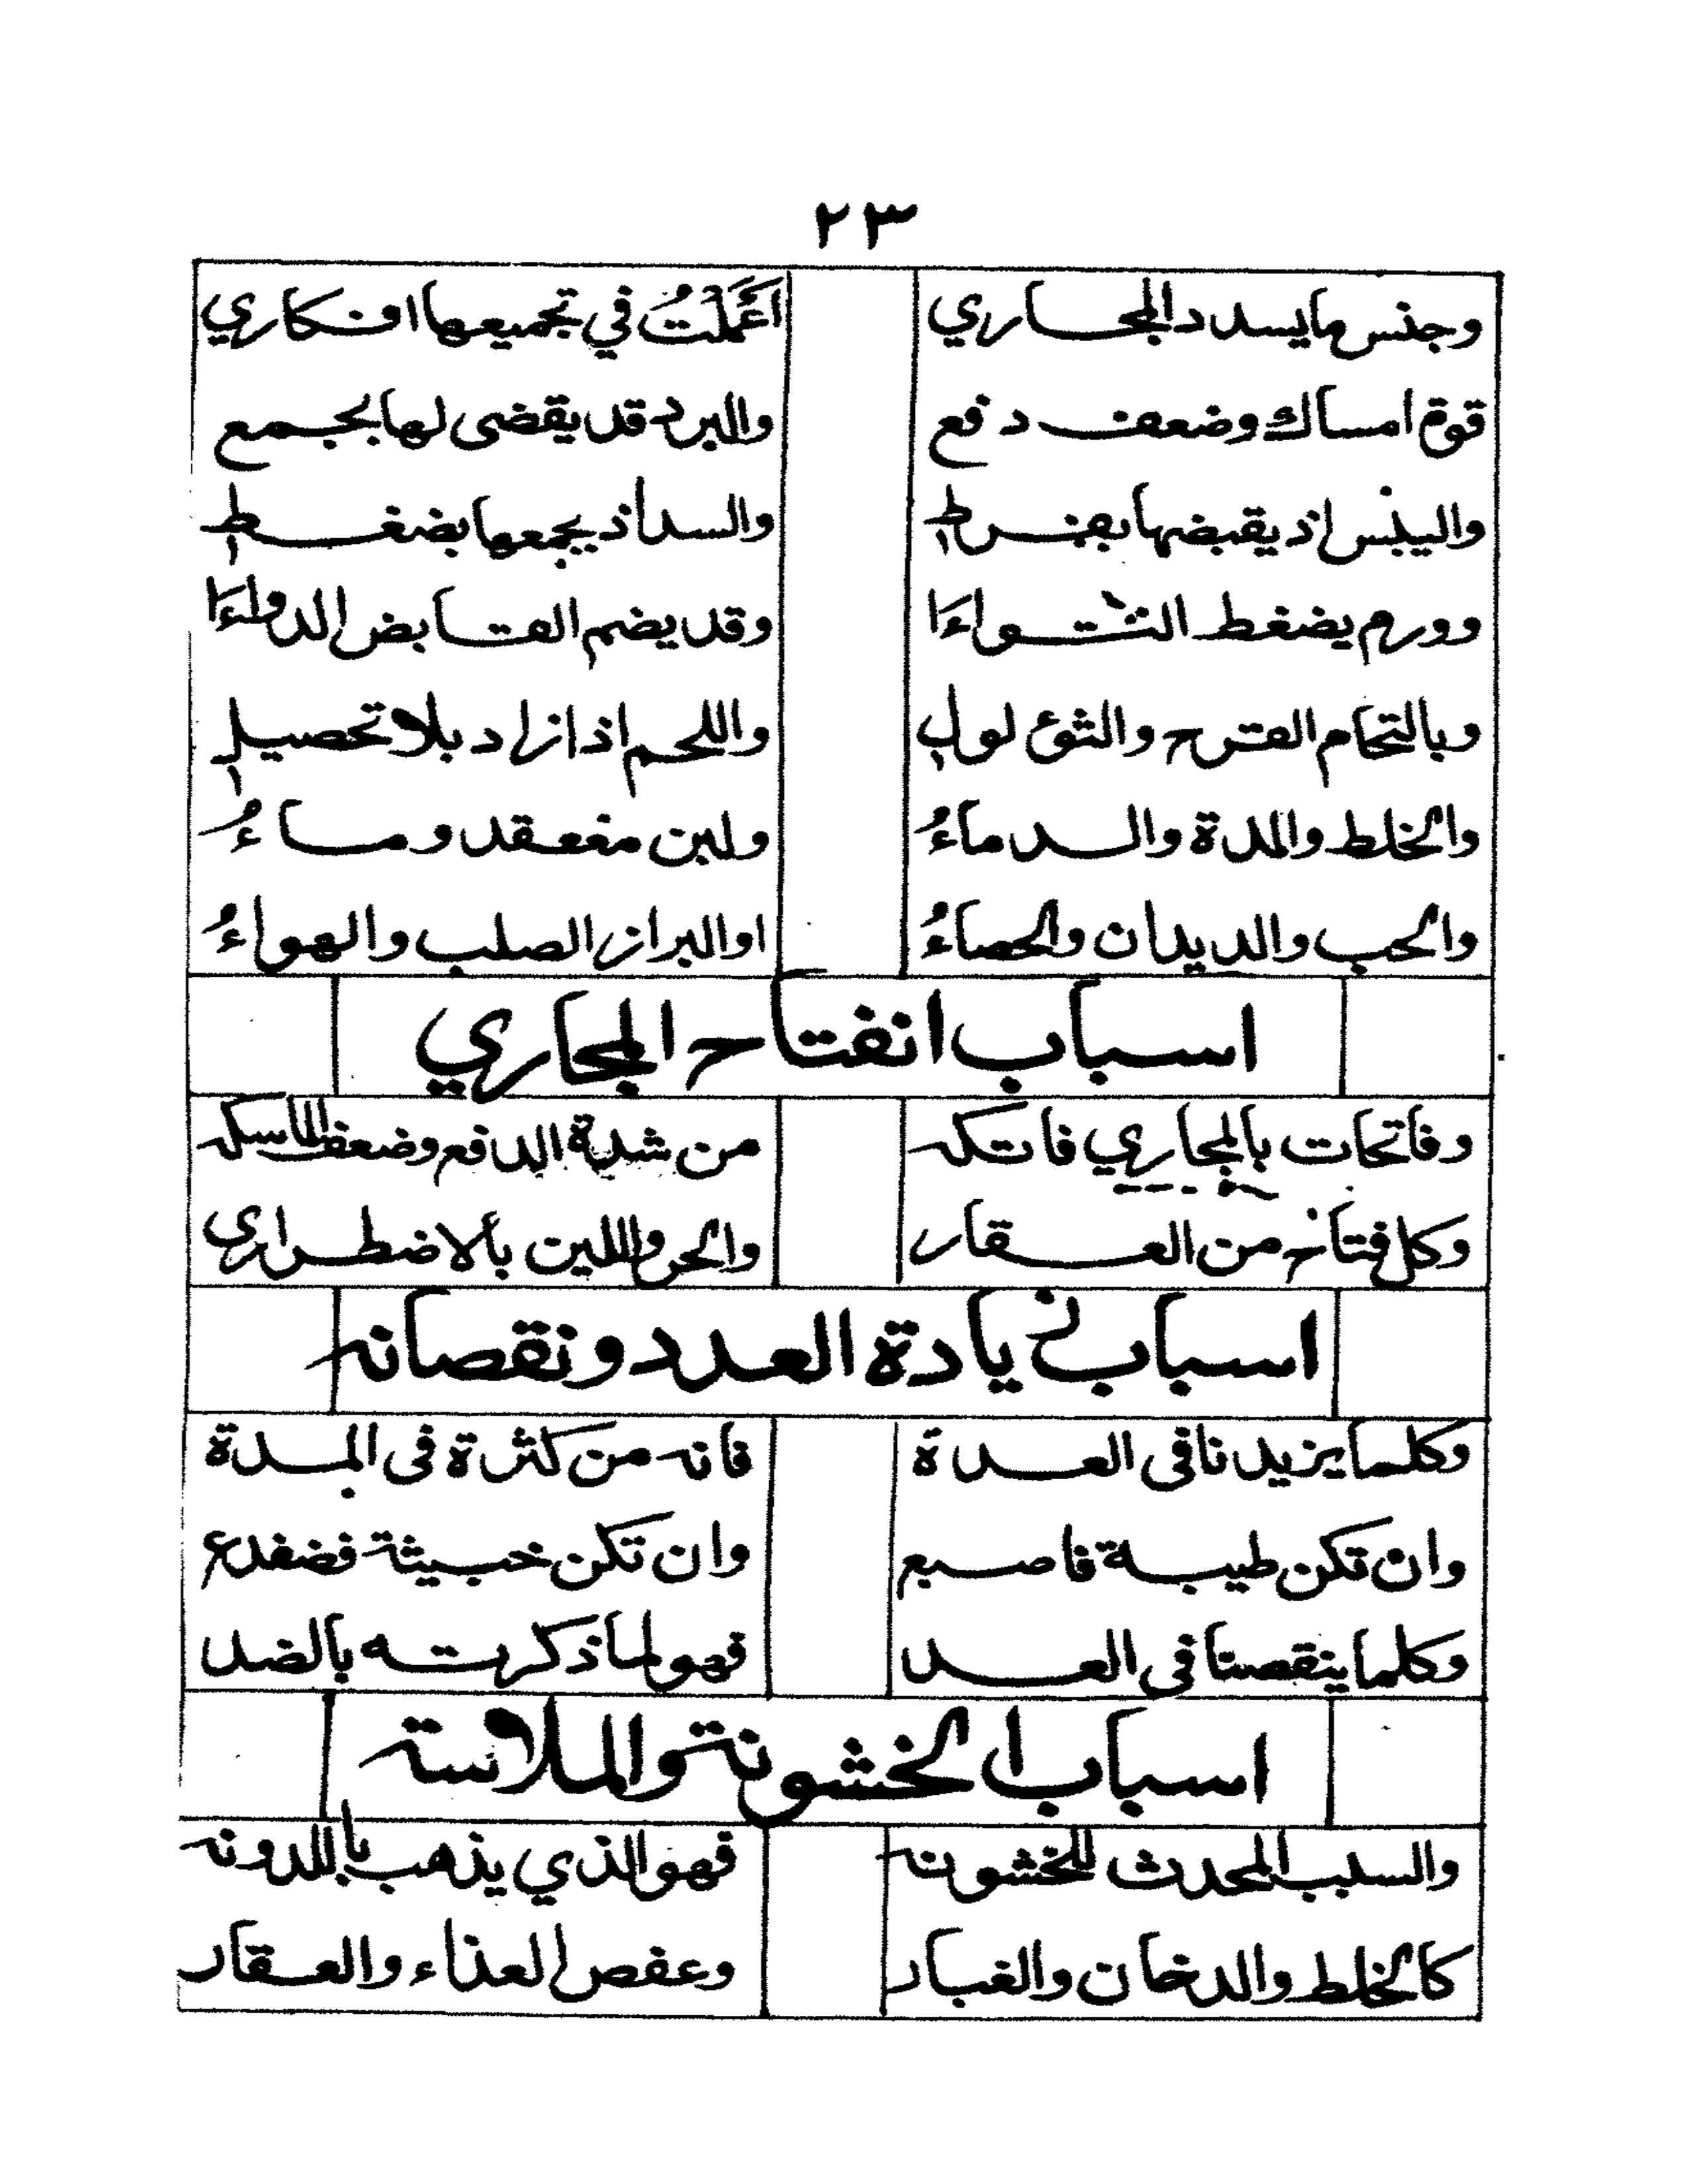 ٢٣
وجنس مايسدد المجاري اَعْمَلْتُ في تجميعها افكاري
قوة امساك وضعف دفع والبرد قد يقضى لها بجمع
واليبس اذ يقبضها بفرط والسد اذ يجمعها بضغط
وورم يضغط التواءَا وقد يضم القابض الدواءَا
وبالتحام القرح والثؤلول واللحم اذا زاد بلا تحصيل
والخلط والمدة والدماءُ ولبن منعقد وماءُ
والحب والديدان والحصاءُ او البراز الصلب والهواءُ
اسباب انفتاح المجاري
وفاتحات بالمجاري فاتكه من شدة الدافع وضعف الماسكه
وكل فتاح من العقار والحر واللين بألاضطراري
اسباب زيادة العدد ونقصانه
وكلما يزيدنا في العدة فانه من كثرة في المدة
وان تكن طيبة فاصبع وان تكن خبيثة فضفدع
وكلما ينقصنا في العد فهو لما ذكرته بالضد
اسباب الخشونة والملاسة
والسبب المحدث للخشونه فهو الذي يذهب باللدونه
كالخلط والدخان والغبار وعفص الغذاء والعقار